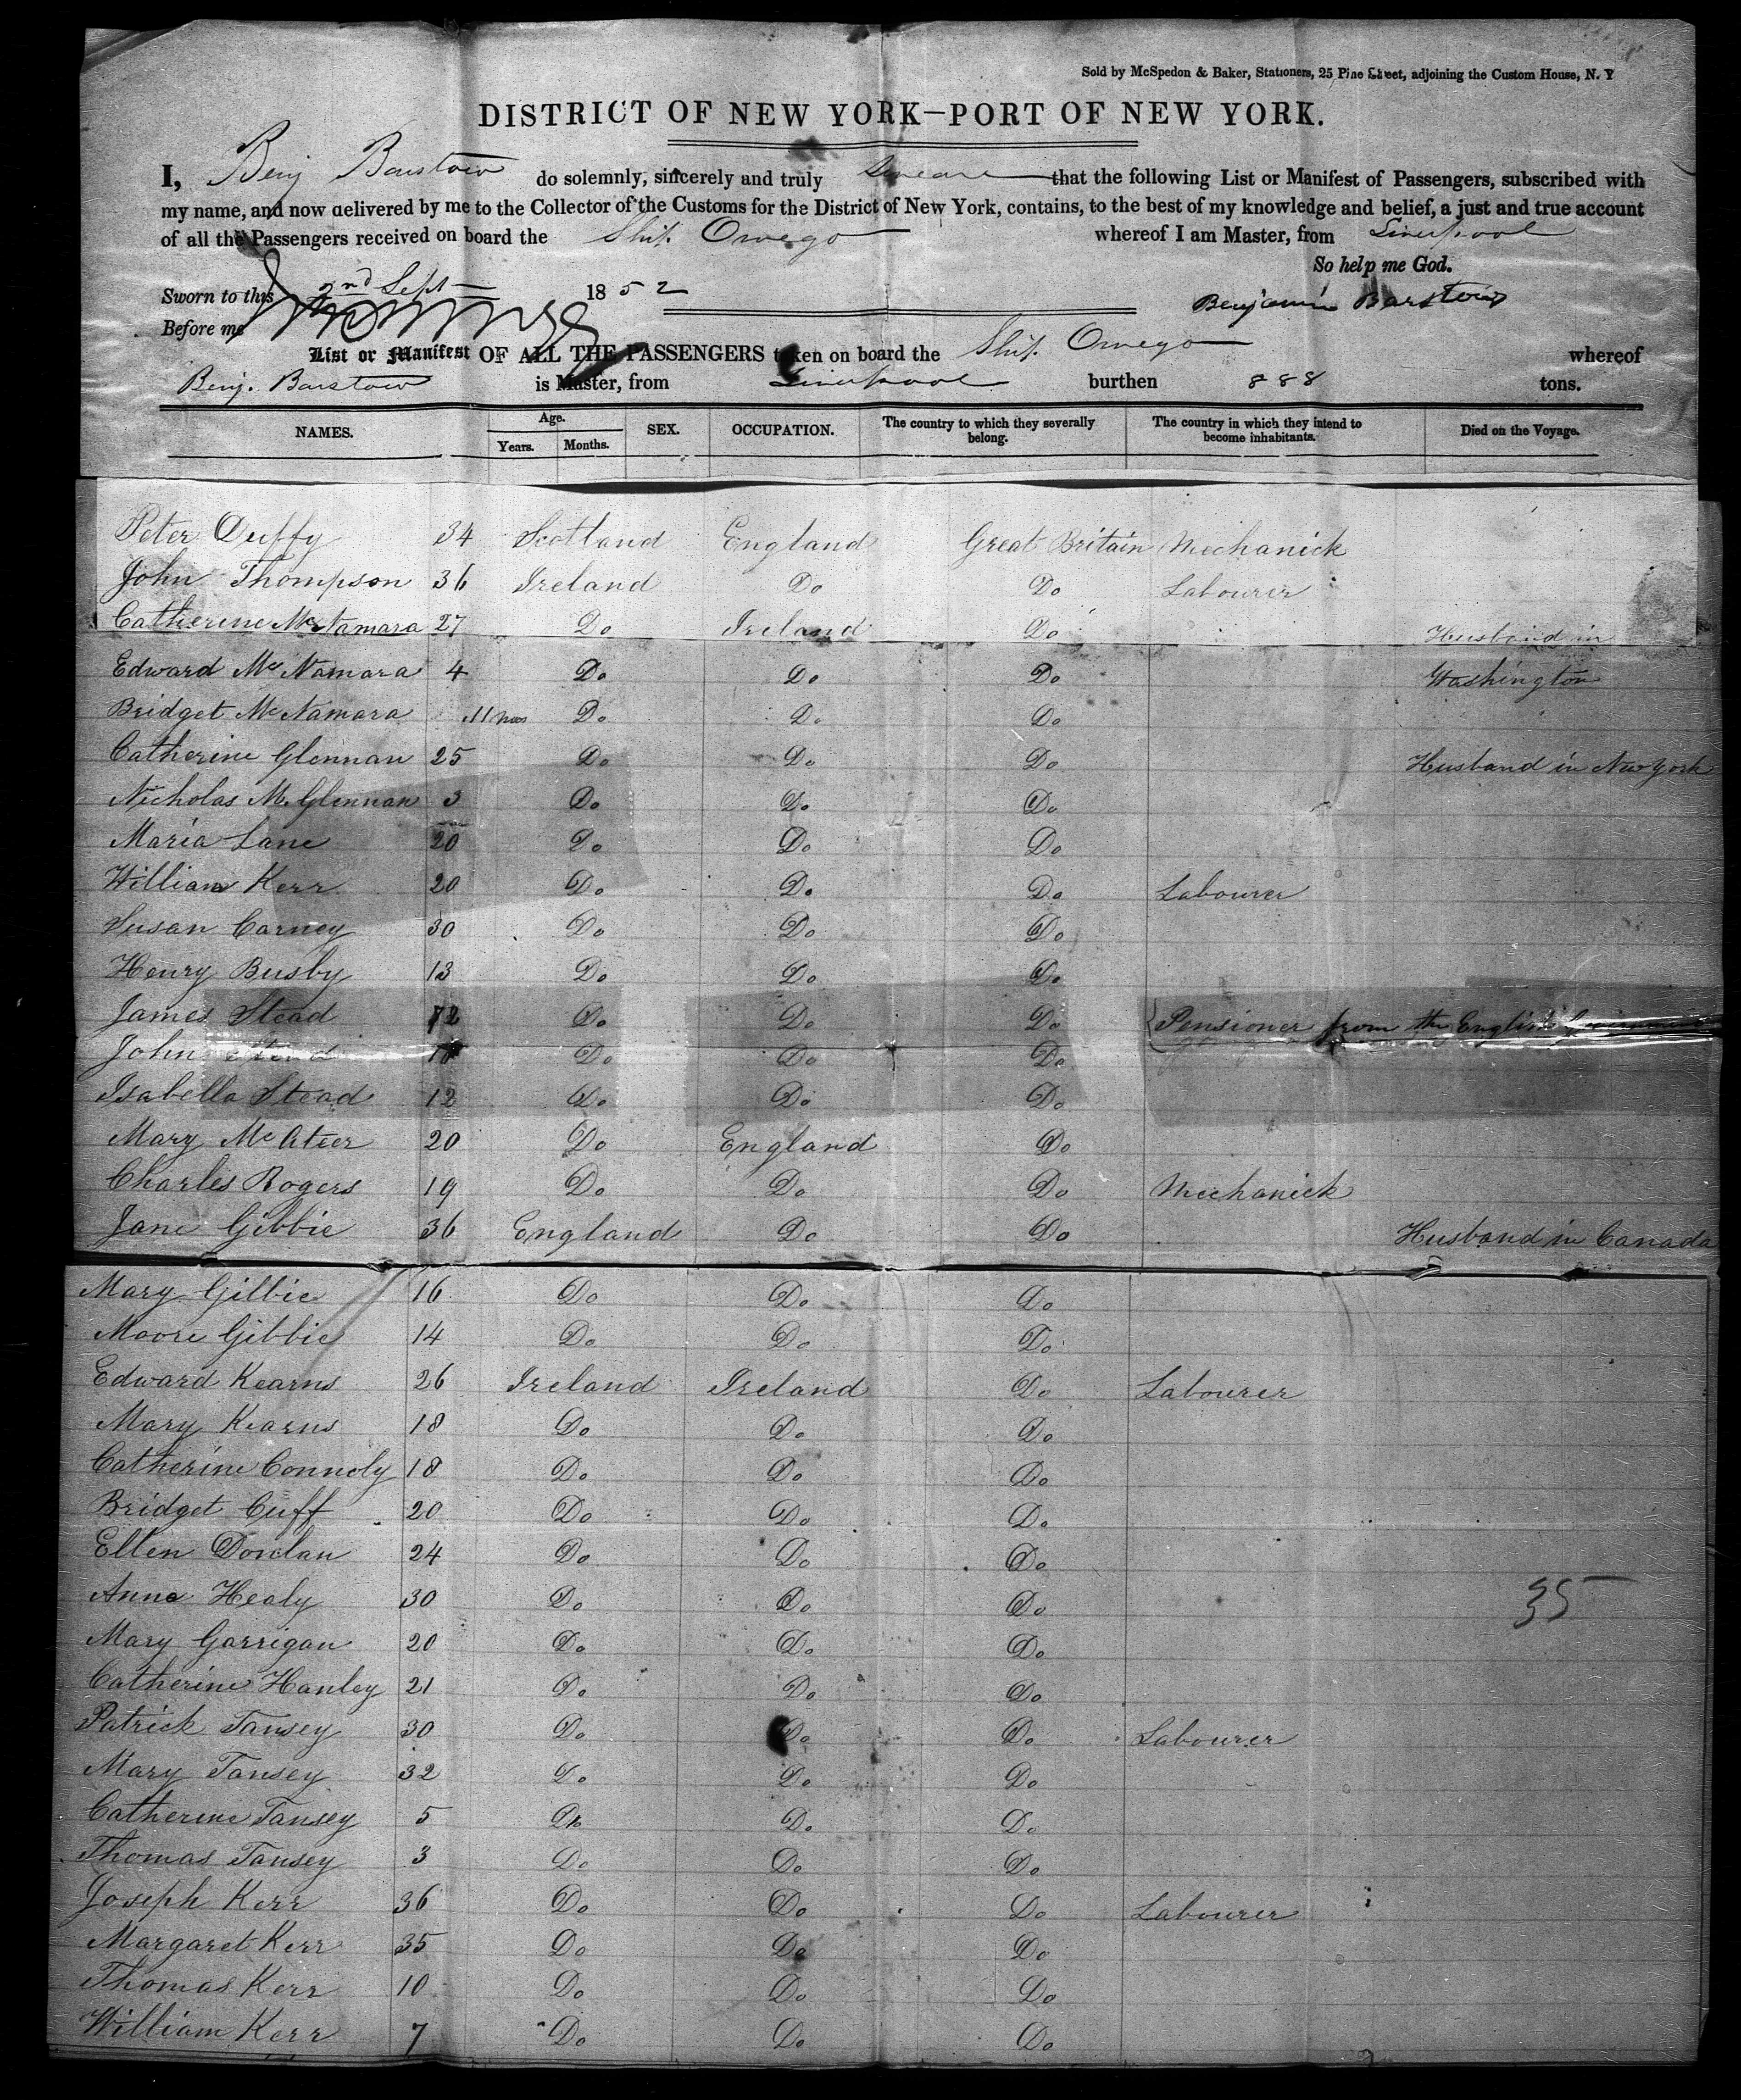 Sold by McSpedon & Baker, Stationers, 25 Pine Street, adjoining the Custom House, N. Y
DISTRICT OF NEW YORK—PORT OF NEW YORK.
I, Benj Barstow do solemnly, sincerely and truly swear that the following List or Manifest of Passengers, subscribed with
my name, and now delivered by me to the Collector of the Customs for the District of New York, contains, to the best of my knowledge and belief, a just and true account
of all the Passengers received on board the Ship Owego whereof I am Master, from Liverpool
So help me God.
Sworn to this 2nd Sept 1852
Benjamin Barstow
Before me
List or Manifest OF ALL THE PASSENGERS taken on board the Ship Owego whereof
Benj. Barstow is Master, from Liverpool burthen 888 tons.
NAMES. Age. Years. Months. SEX. OCCUPATION. The country to which they severally belong. The country in which they intend to become inhabitants. Died on the Voyage.
Peter Duffy 34 Scotland England Great Britain Mechanick
John Thompson 36 Ireland Do Do Labourer
Catherine McNamara 27 Do Ireland Do Husband in
Edward McNamara 4 Do Do Do Washington
Bridget McNamara 11 mos Do Do Do
Catherine Glennan 25 Do Do Do Husband in New York
Nicholas M. Glennan 3 Do Do Do
Maria Lane 20 Do Do Do
William Kerr 20 Do Do Do Labourer
Susan Carney 30 Do Do Do
Henry Busby 13 Do Do Do
James Stead 72 Do Do Do Pensioner from the English
John Stead Do Do Do
Isabella Stead 12 Do Do Do
Mary McAteer 20 Do England Do
Charles Rogers 19 Do Do Do Mechanick
Jane Gibbie 36 England Do Do Husband in Canada
Mary Gibbie 16 Do Do Do
Moore Gibbie 14 Do Do Do
Edward Kearns 26 Ireland Ireland Do Labourer
Mary Kearns 18 Do Do Do
Catherine Connoly 18 Do Do Do
Bridget Cuff 20 Do Do Do
Ellen Donlan 24 Do Do Do
Anne Healy 30 Do Do Do
35
Mary Garrigan 20 Do Do Do
Catherine Hanley 21 Do Do Do
Patrick Tansey 30 Do Do Do Labourer
Mary Tansey 32 Do Do Do
Catherine Tansey 5 Do Do Do
Thomas Tansey 3 Do Do Do
Joseph Kerr 36 Do Do Do Labourer
Margaret Kerr 35 Do Do Do
Thomas Kerr 10 Do Do Do
William Kerr 7 Do Do Do